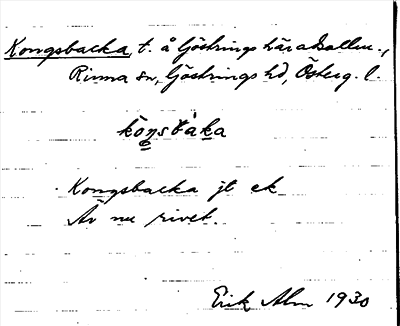 Kongsbacka, t. å Göstrings häradsallm.,
Rinna sn, Göstrings hd, Österg. l.
kơnsbaka
Kongsbacka jt ek
Är nu rivet.
Erik Alm 1930